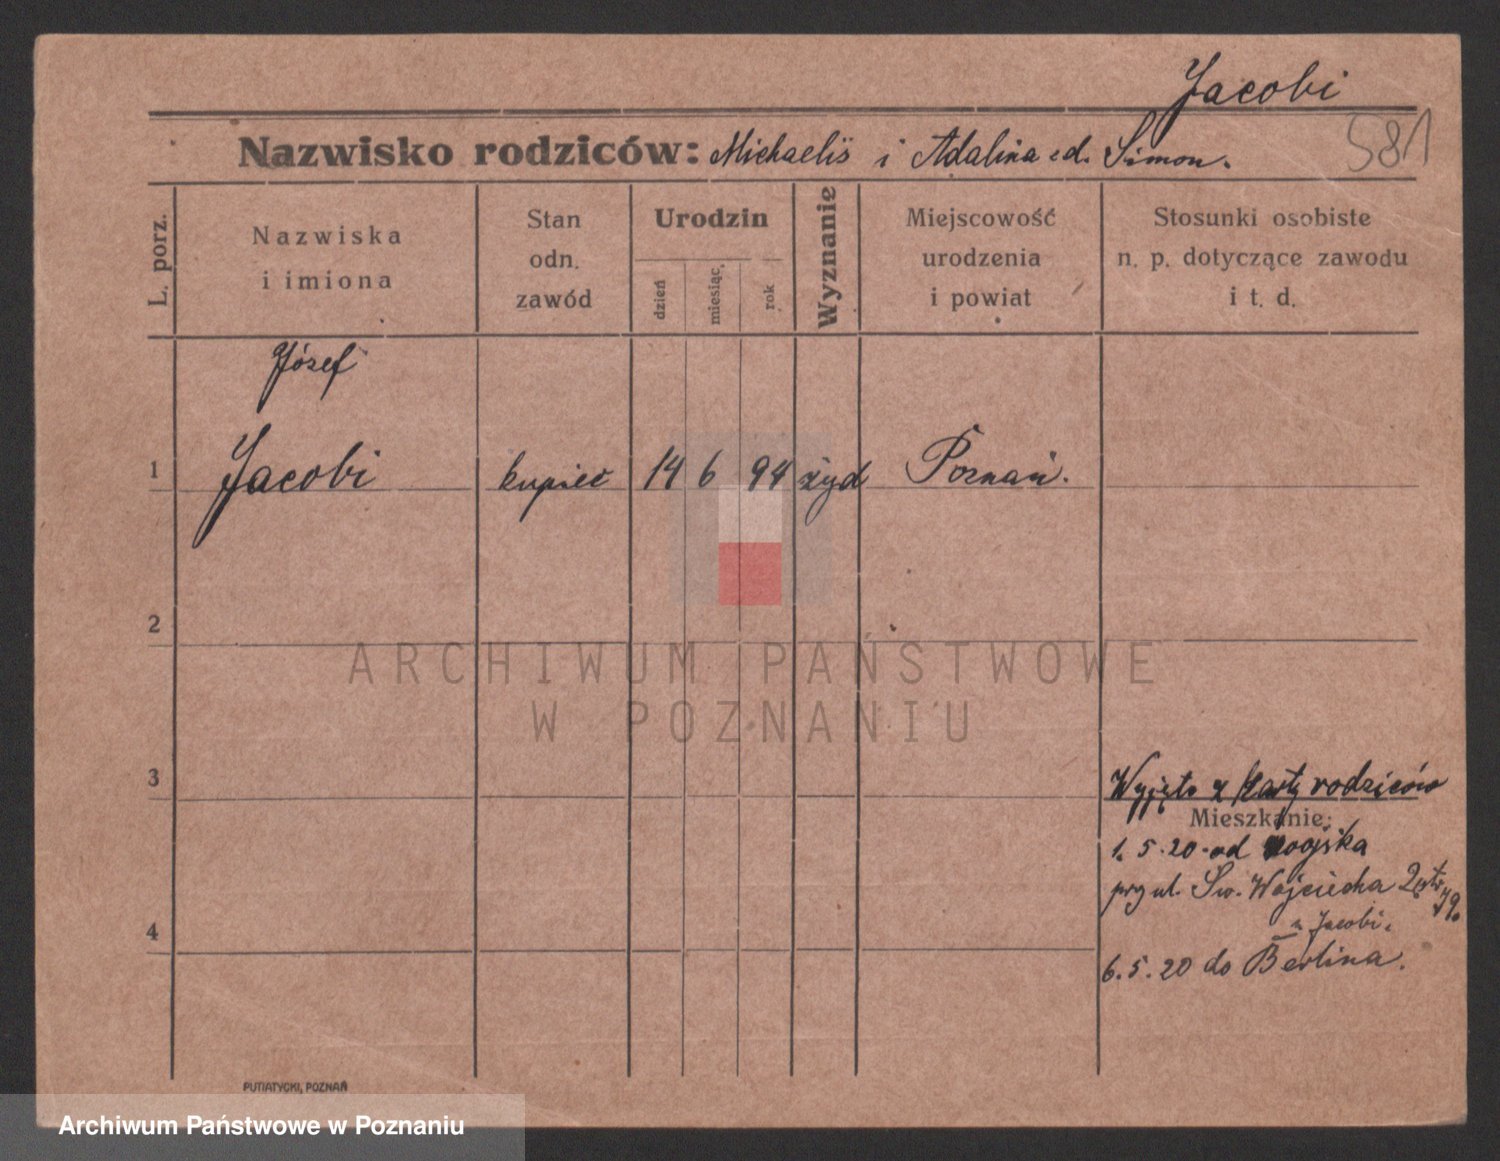 Jacobi
581
Nazwisko rodziców: Michaelis i Adalina Simon.
L. porz.
Nazwiska
i imiona
Stan
odn.
zawód
Urodzin
dzień
miesiąc
rok
Wyznanie
Miejscowość
urodzenia
i powiat
Stosunki osobiste
n. p. dotyczące zawodu
i t. d.
Józef
1 Jacobi kupiec 14 6 94 żyd Poznań.
2
ARCHIWUM PAŃSTWOWE
W POZNANIU
3
Wyjęto z karty rodziców
Mieszkanie:
1. 5. 20 od wojska
przy ul. Św. Wojciecha
Jacobi.
4
6. 5. 20 do Berlina.
PUTIATYCKI, POZNAŃ
Archiwum Państwowe w Poznaniu